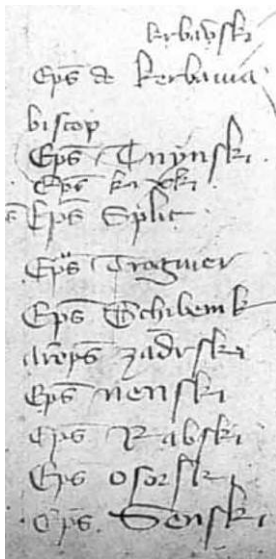 krbavski
Eps de kerbauia
biscop
Eps Tnynski
Eps
Eps Split
Eps Troguier
Eps Schibenik
areps zadrski
Eps nenski
Eps Rabski
Eps osorski
Eps Senski